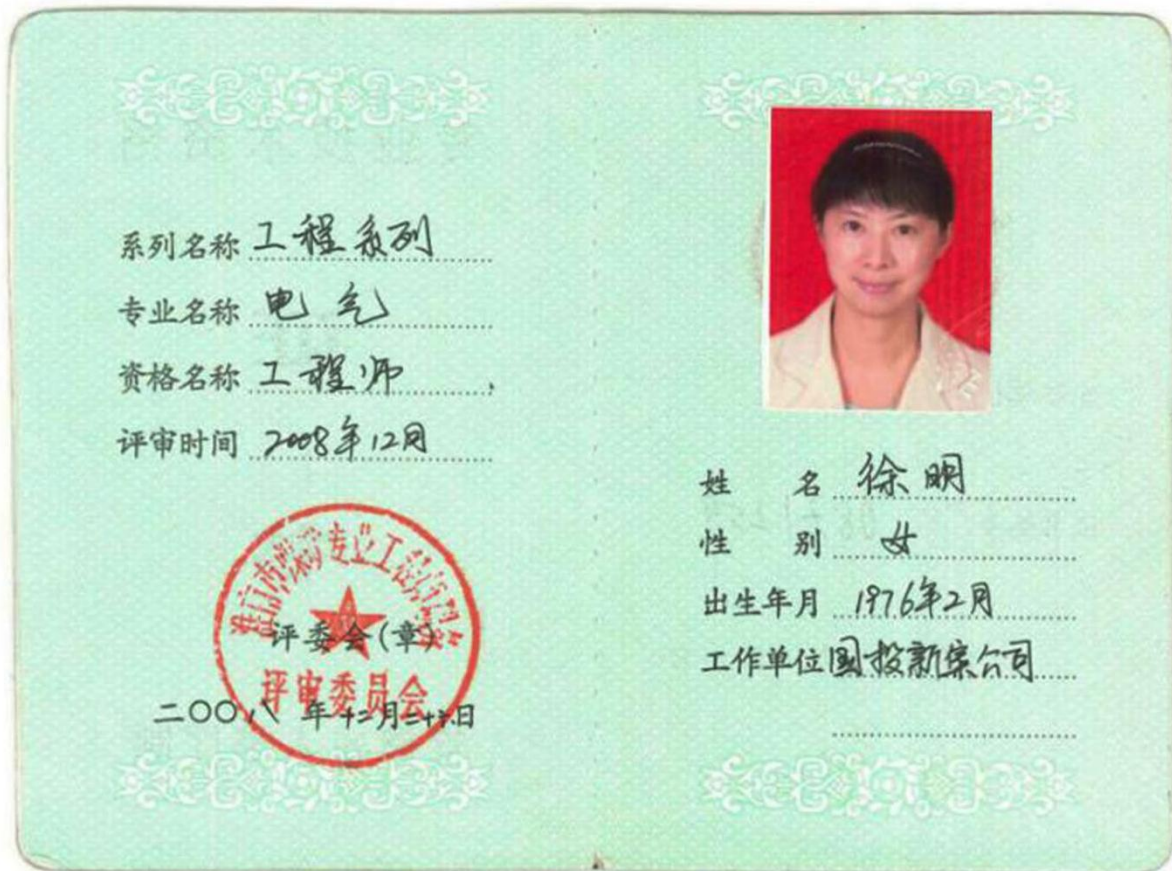 系列名称 工程系列
专业名称 电气
资格名称 工程师
评审时间 2008年12月
淮南市煤矿专业工程师资格
评委会(章)
评审委员会
二〇〇八年十二月二十六日
姓 名 徐明
性 别 女
出生年月 1976年2月
工作单位 国投新集公司